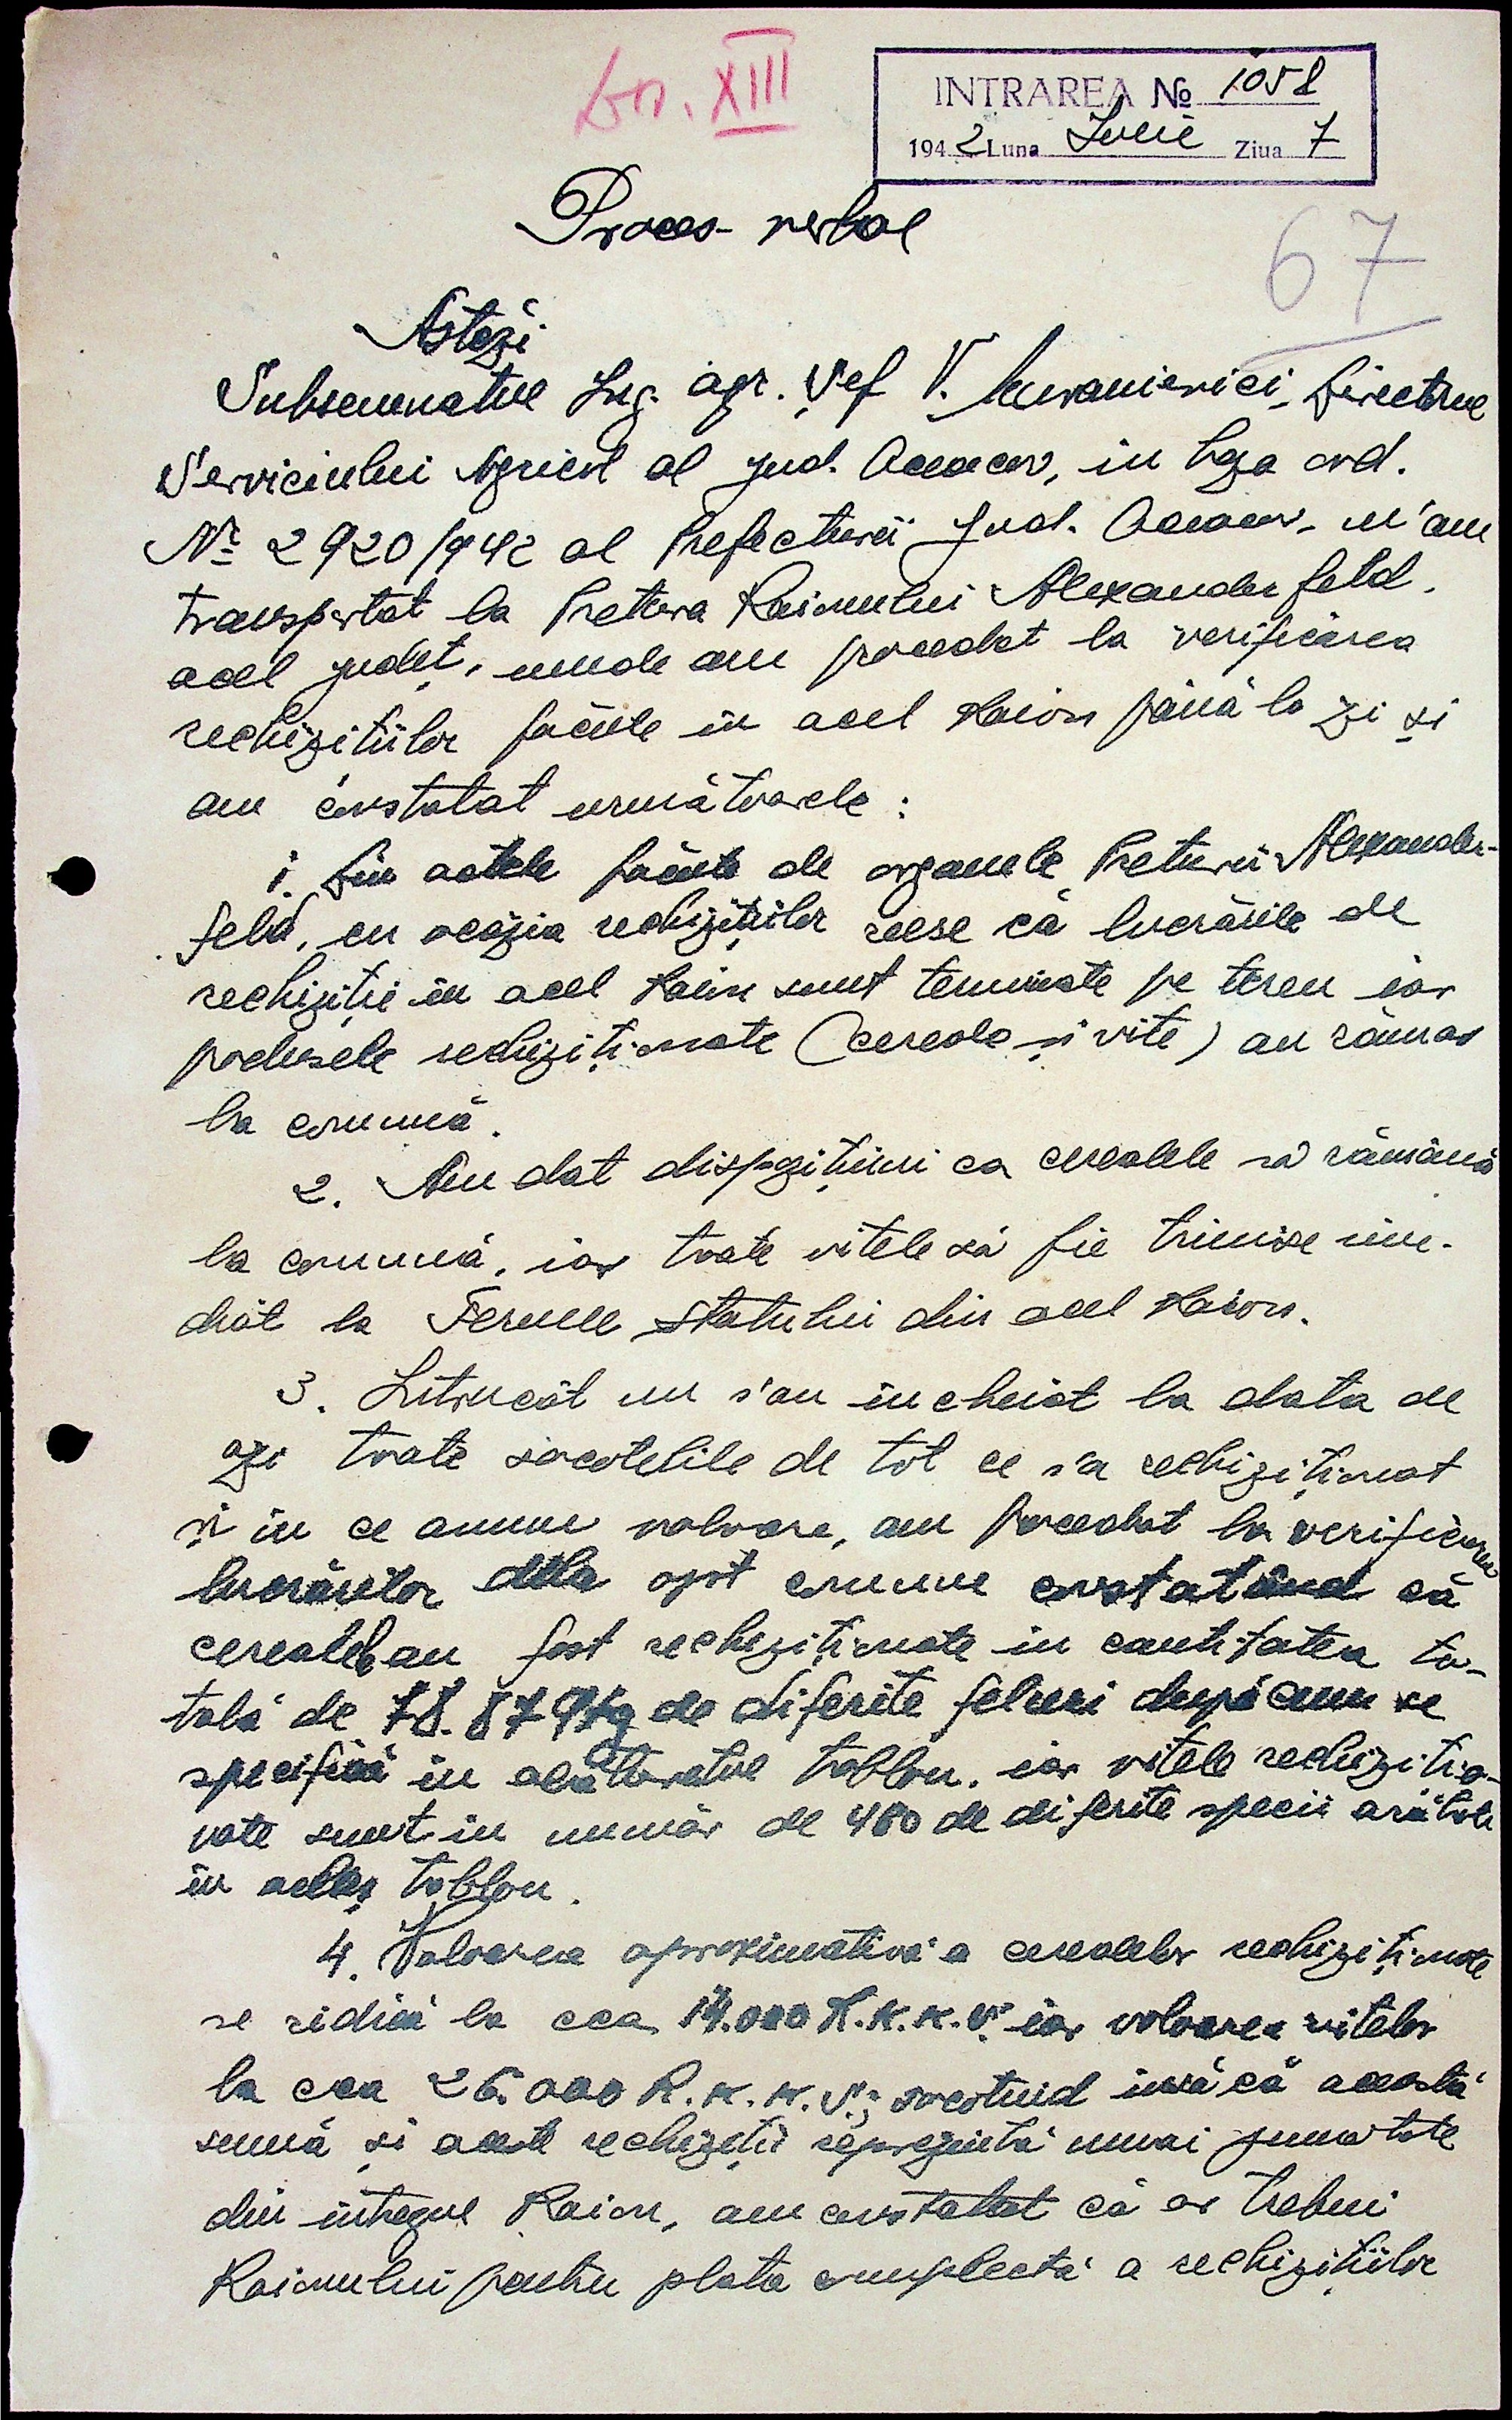 XIII
INTRAREA № 1058
1942 Luna Iulie Ziua 7
Proces-verbal
67
Astăzi
Subsemnatul Ing. agr. Șef V. Directorul
Serviciului Agricol al Jud. Oceacov, în baza ord.
Nr 2920/942 al Prefecturii Jud. Oceacov, m'am
transportat la Pretura Raionului Alexanderfeld,
acel județ, unde am procedat la verificarea
rechizițiilor făcute în acel Raion până la zi și
am constatat următoarele:
1. Din actele făcute de organele Preturii Alexander-
feld, cu ocazia rechizițiilor reese că lucrările de
rechiziție în acel Raion sunt terminate pe teren iar
produsele rechiziționate (cereale și vite) au rămas
la comună.
2. Am dat dispozițiuni ca cerealele să rămână
la comună, iar toate vitele să fie trimise ime-
diat la Fermele Statului din acel Raion.
3. Întrucât nu s'au încheiat la data de
azi toate socotelile de tot ce s'a rechiziționat
și în ce anume valoare, am procedat la verificarea
lucrărilor dela opt comune constatând că
cerealele au fost rechiziționate în cantitatea to-
tală de 78.879 kg de diferite feluri după cum se
specifică în alăturatul tablou, iar vitele rechizițio-
nate sunt în număr de 480 de diferite specii arătate
în același tablou.
4. Valoarea aproximativă a cerealelor rechiziționate
se ridică la cca 14.000 R.K.K.S. iar valoarea vitelor
la cca 26.000 R.K.K.S.; socotind însă că această
sumă și aceste rechiziții reprezintă numai jumătate
din întregul Raion, am constatat că ar trebui
Raionului pentru plata complectă a rechizițiilor